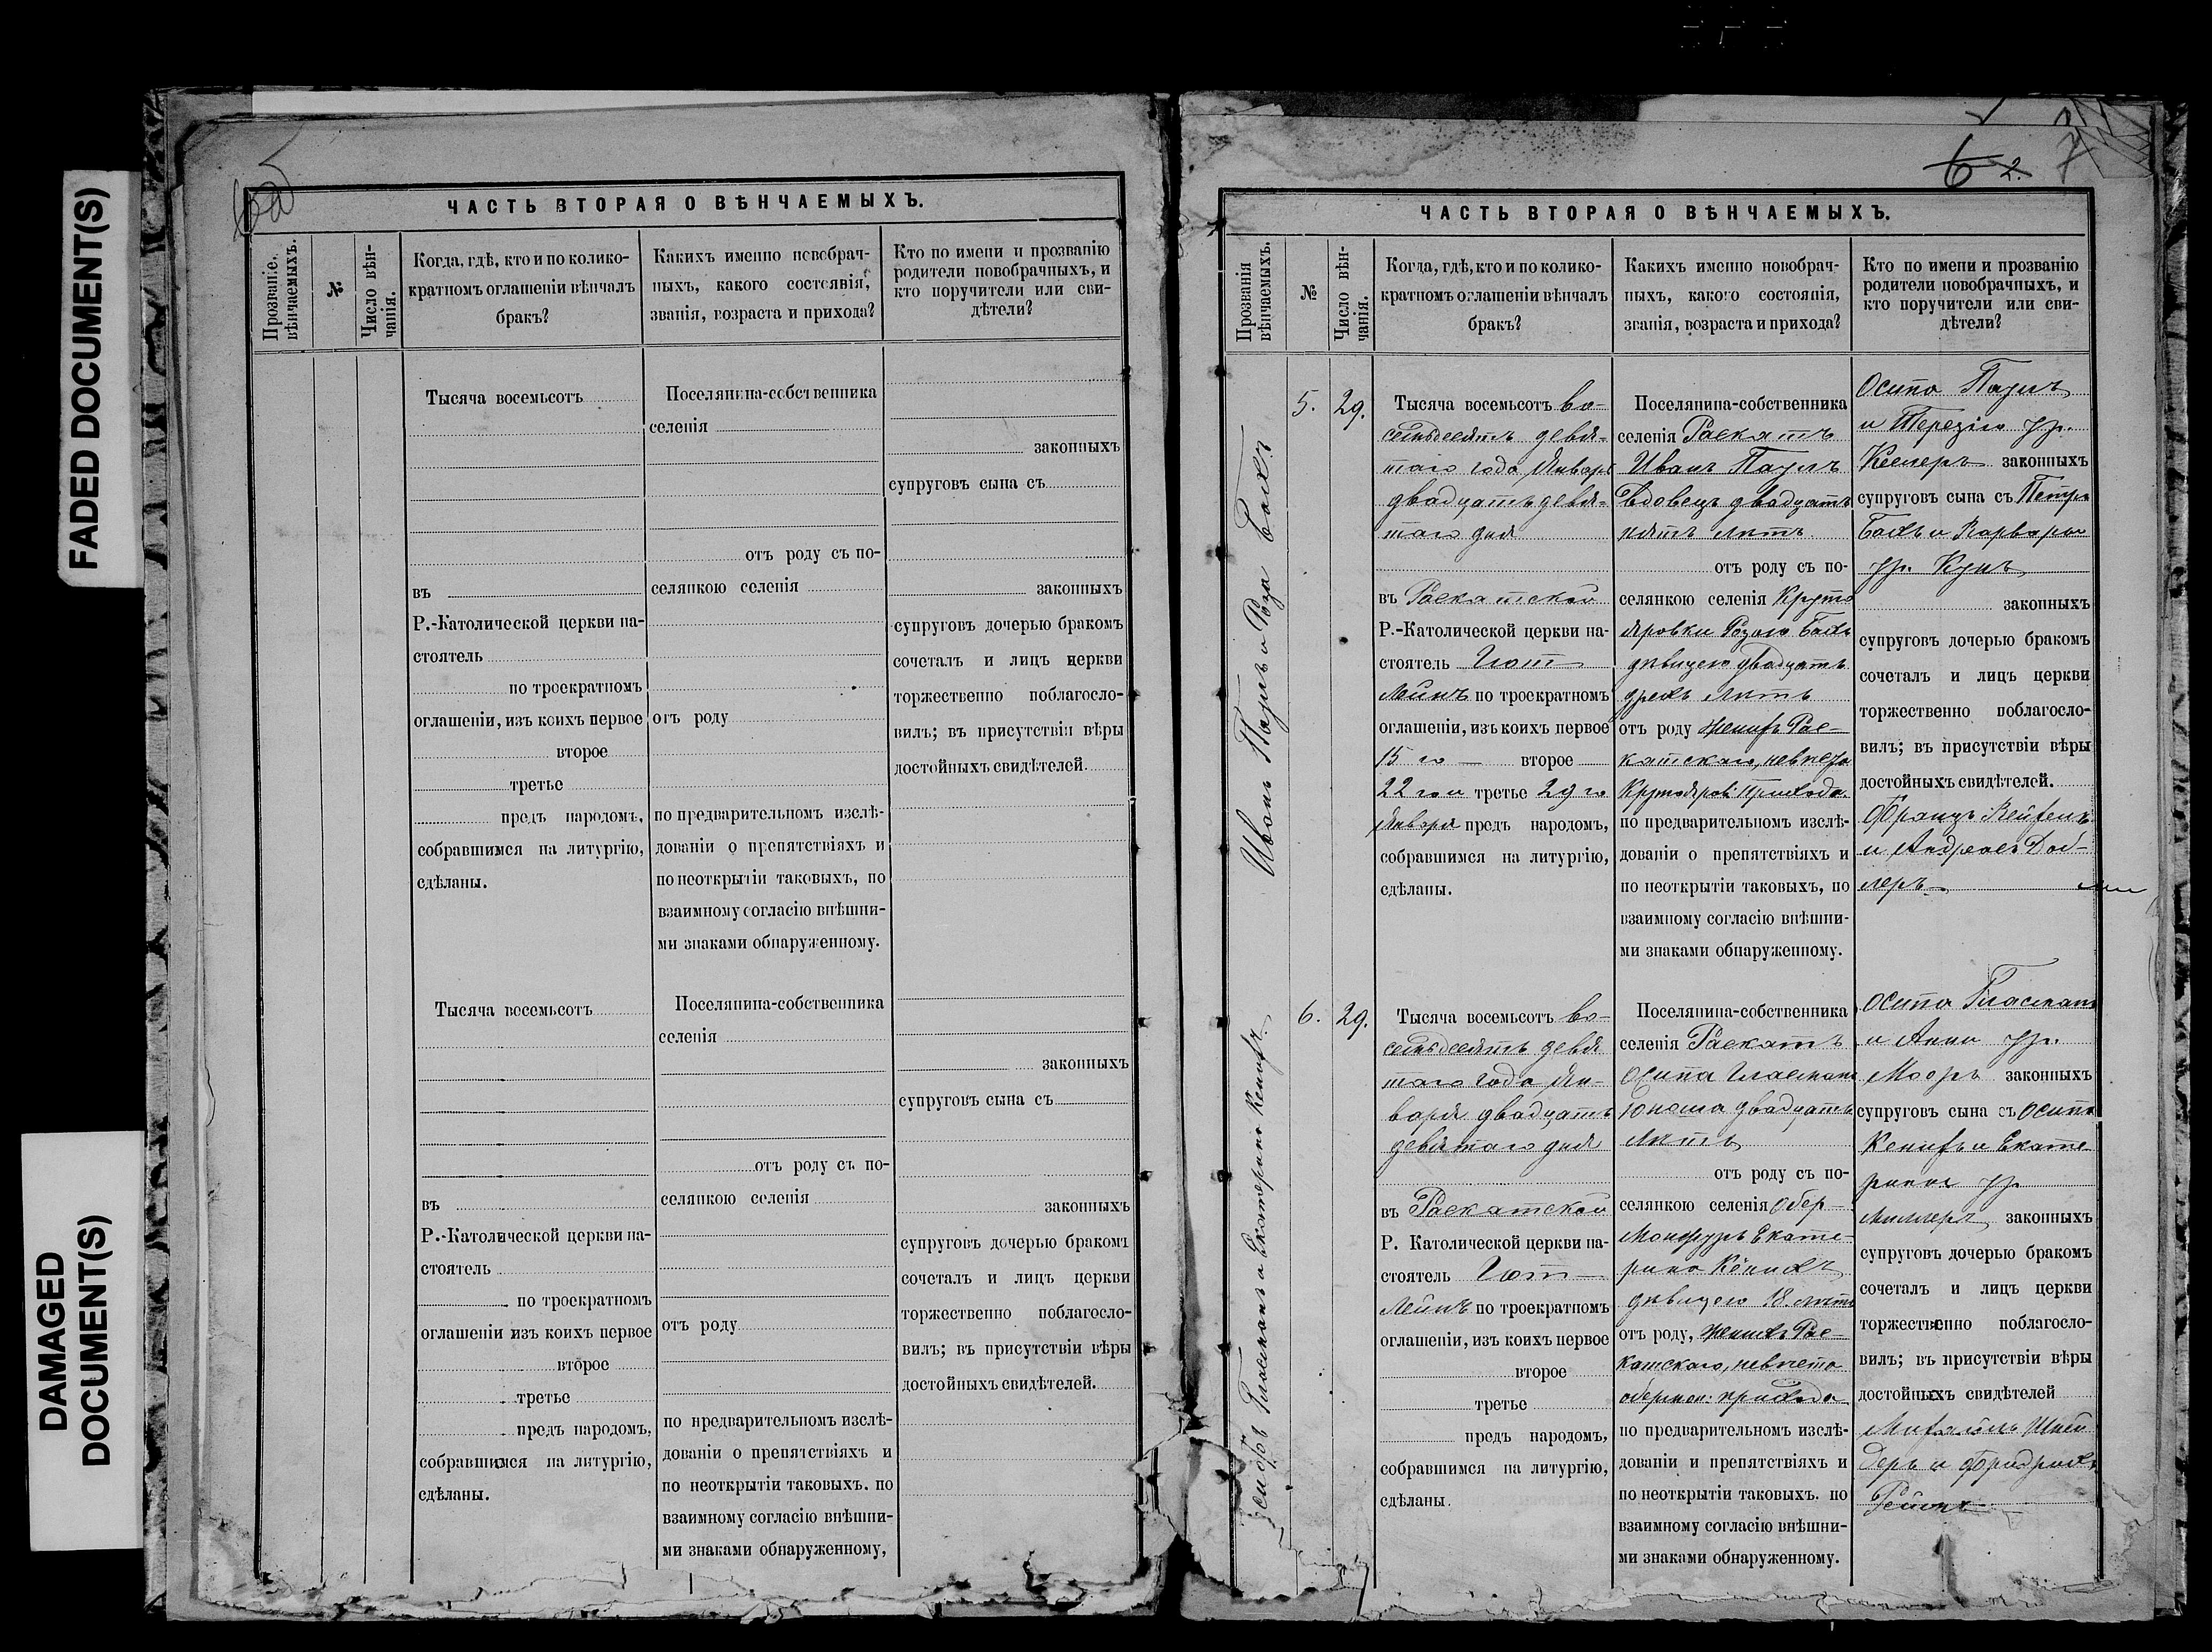 FADED DOCUMENT(S)
DAMAGED
DOCUMENT(S)
ЧАСТЬ ВТОРАЯ О ВѢНЧАЕМЫХЪ.
Прозваніе
вѣнчаемыхъ.
№
Число вѣн-
чанія.
Когда, гдѣ, кто и по колико-
кратномъ оглашеніи вѣнчалъ
бракъ?
Какихъ именно новобрач-
ныхъ, какого состоянія,
званія, возраста и прихода?
Кто по имени и прозванію
родители новобрачныхъ, и
кто поручители или сви-
дѣтели?
Тысяча восемьсотъ
въ
Р.-Католической церкви на-
стоятель
по троекратномъ
оглашеніи, изъ коихъ первое
второе
третье
предъ народомъ,
собравшимся на литургію,
сдѣланы.
Поселянина-собственника
селенія
отъ роду съ по-
селянкою селенія
отъ роду
по предварительномъ изслѣ-
дованіи о препятствіяхъ и
по неоткрытіи таковыхъ, по
взаимному согласію внѣшни-
ми знаками обнаруженному.
законныхъ
супруговъ сына съ
законныхъ
супруговъ дочерью бракомъ
сочеталъ и лицъ церкви
торжественно поблагосло-
вилъ; въ присутствіи вѣры
достойныхъ свидѣтелей.
Тысяча восемьсотъ
въ
Р.-Католической церкви на-
стоятель
по троекратномъ
оглашеніи изъ коихъ первое
второе
третье
предъ народомъ,
собравшимся на литургію,
сдѣланы.
Поселянина-собственника
селенія
отъ роду съ по-
селянкою селенія
отъ роду
по предварительномъ изслѣ-
дованіи о препятствіяхъ и
по неоткрытіи таковыхъ. по
взаимному согласію внѣшни-
ми знаками обнаруженному,
законныхъ
супруговъ сына съ
законныхъ
супруговъ дочерью бракомъ
сочеталъ и лицъ церкви
торжественно поблагосло-
вилъ; въ присутствіи вѣры
достойныхъ свидѣтелей.
6 2. 7
ЧАСТЬ ВТОРАЯ О ВѢНЧАЕМЫХЪ.
Прозванія
вѣнчаемыхъ.
№
Число вѣн-
чанія.
Когда, гдѣ, кто и по колико-
кратномъ оглашеніи вѣнчалъ
бракъ?
Какихъ именно новобрач-
ныхъ, какого состоянія,
званія, возраста и прихода?
Кто по имени и прозванію
родители новобрачныхъ, и
кто поручители или сви-
дѣтели?
Иванъ Паулъ и Роза Бахъ
5. 29.
Тысяча восемьсотъ во-
семьдесятъ девя-
таго года Января
двадцать девя-
таго дня
въ Раскатской
Р.-Католической церкви на-
стоятель Гот
лейнъ по троекратномъ
оглашеніи, изъ коихъ первое
15 го — второе
22 го и третье 29 го
Января предъ народомъ,
собравшимся на литургію,
сдѣланы.
Поселянина-собственника
селенія Раскатъ
Иванъ Паулъ
Вдовецъ двадцать
пять лѣтъ
отъ роду съ по-
селянкою селенія Круто
яровки Розою Бахъ
дѣвицею двадцать
лѣтъ
отъ роду женихъ Рас-
катскаго, невѣста
Крутояров: прихода.
по предварительномъ изслѣ-
дованіи о препятствіяхъ и
по неоткрытіи таковыхъ, по
взаимному согласію внѣшни-
ми знаками обнаруженному.
Осипа Паулъ
и Терезіи ур.
Келлеръ законныхъ
супруговъ сына съ Петра
Бахъ и Варвары
ур. Кунъ
законныхъ
супруговъ дочерью бракомъ
сочеталъ и лицъ церкви
торжественно поблагосло-
вилъ; въ присутствіи вѣры
достойныхъ свидѣтелей.
Францъ
и Андреасъ Доб-
леръ
Іосифъ Гласманъ и Екатерина Кенихъ
6. 29.
Тысяча восемьсотъ во-
семьдесятъ девя
таго года Ян-
варя двадцать
девятаго дня
въ Раскатской
Р. Католической церкви на-
стоятель Гот—
лейнъ по троекратномъ
оглашеніи, изъ коихъ первое
второе
третье
предъ народомъ,
собравшимся на литургію,
сдѣланы.
Поселянина-собственника
селенія Раскатъ
Осипа Гласманъ
Юноша двадцать
лѣтъ
отъ роду съ по-
селянкою селенія Обер-
Монжуръ Екате-
рина Кёнихъ
дѣвицею 18 лѣтъ
отъ роду, женихъ Рас-
катскаго, невѣста
обермон: прихода
по предварительномъ изслѣ-
дованіи и препятствіяхъ и
по неоткрытіи таковыхъ. по
взаимному согласію внѣшни-
ми знаками обнаруженному.
Осипа Гласманъ
и Анны ур.
Мооръ законныхъ
супруговъ сына съ Осипа
Кенихъ и Екате
рины ур.
Миллеръ законныхъ
супруговъ дочерью бракомъ
сочеталъ и лицъ церкви
торжественно поблагосло-
вилъ; въ присутствіи вѣры
достойныхъ свидѣтелей
Михаилъ Шней
деръ и Фридрихъ